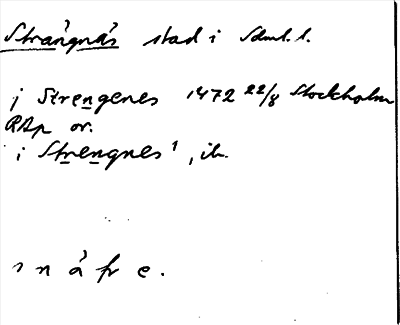 Strängnäs stad i Södml. l.
j Strengenes 1472 22/8 Stockholm
RAp or.
i Strengnes¹, ib.